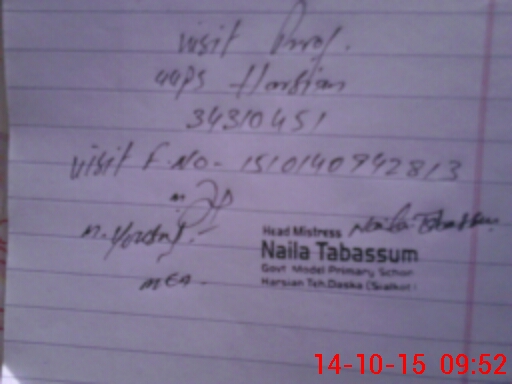 visit Prof.
GGPS Harsian
34310451
visit F.No- 1510140942813
Head Mistress Naila Tabassum
Naila Tabassum
Govt Model Primary School
Harsian Teh.Daska (Sialkot)
MEA.
14-10-15 09:52